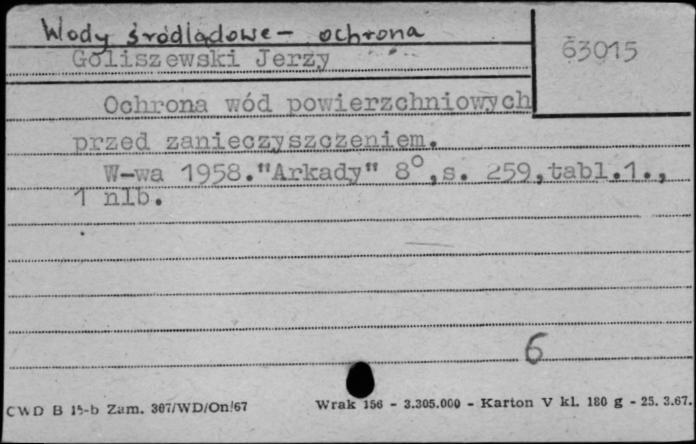 Wody śródlądowe - ochrona
Goliszewski Jerzy
63015
Ochrona wód powierzchniowych
przed zanieczyszczeniem.
W-wa 1958."Arkady" 8°,s. 259,tabl.1.,
1 nlb.
6
CWD B 15-b Zam. 307/WD/On/67
Wrak 156 - 3.305.000 - Karton V kl. 180 g - 25. 3.67.